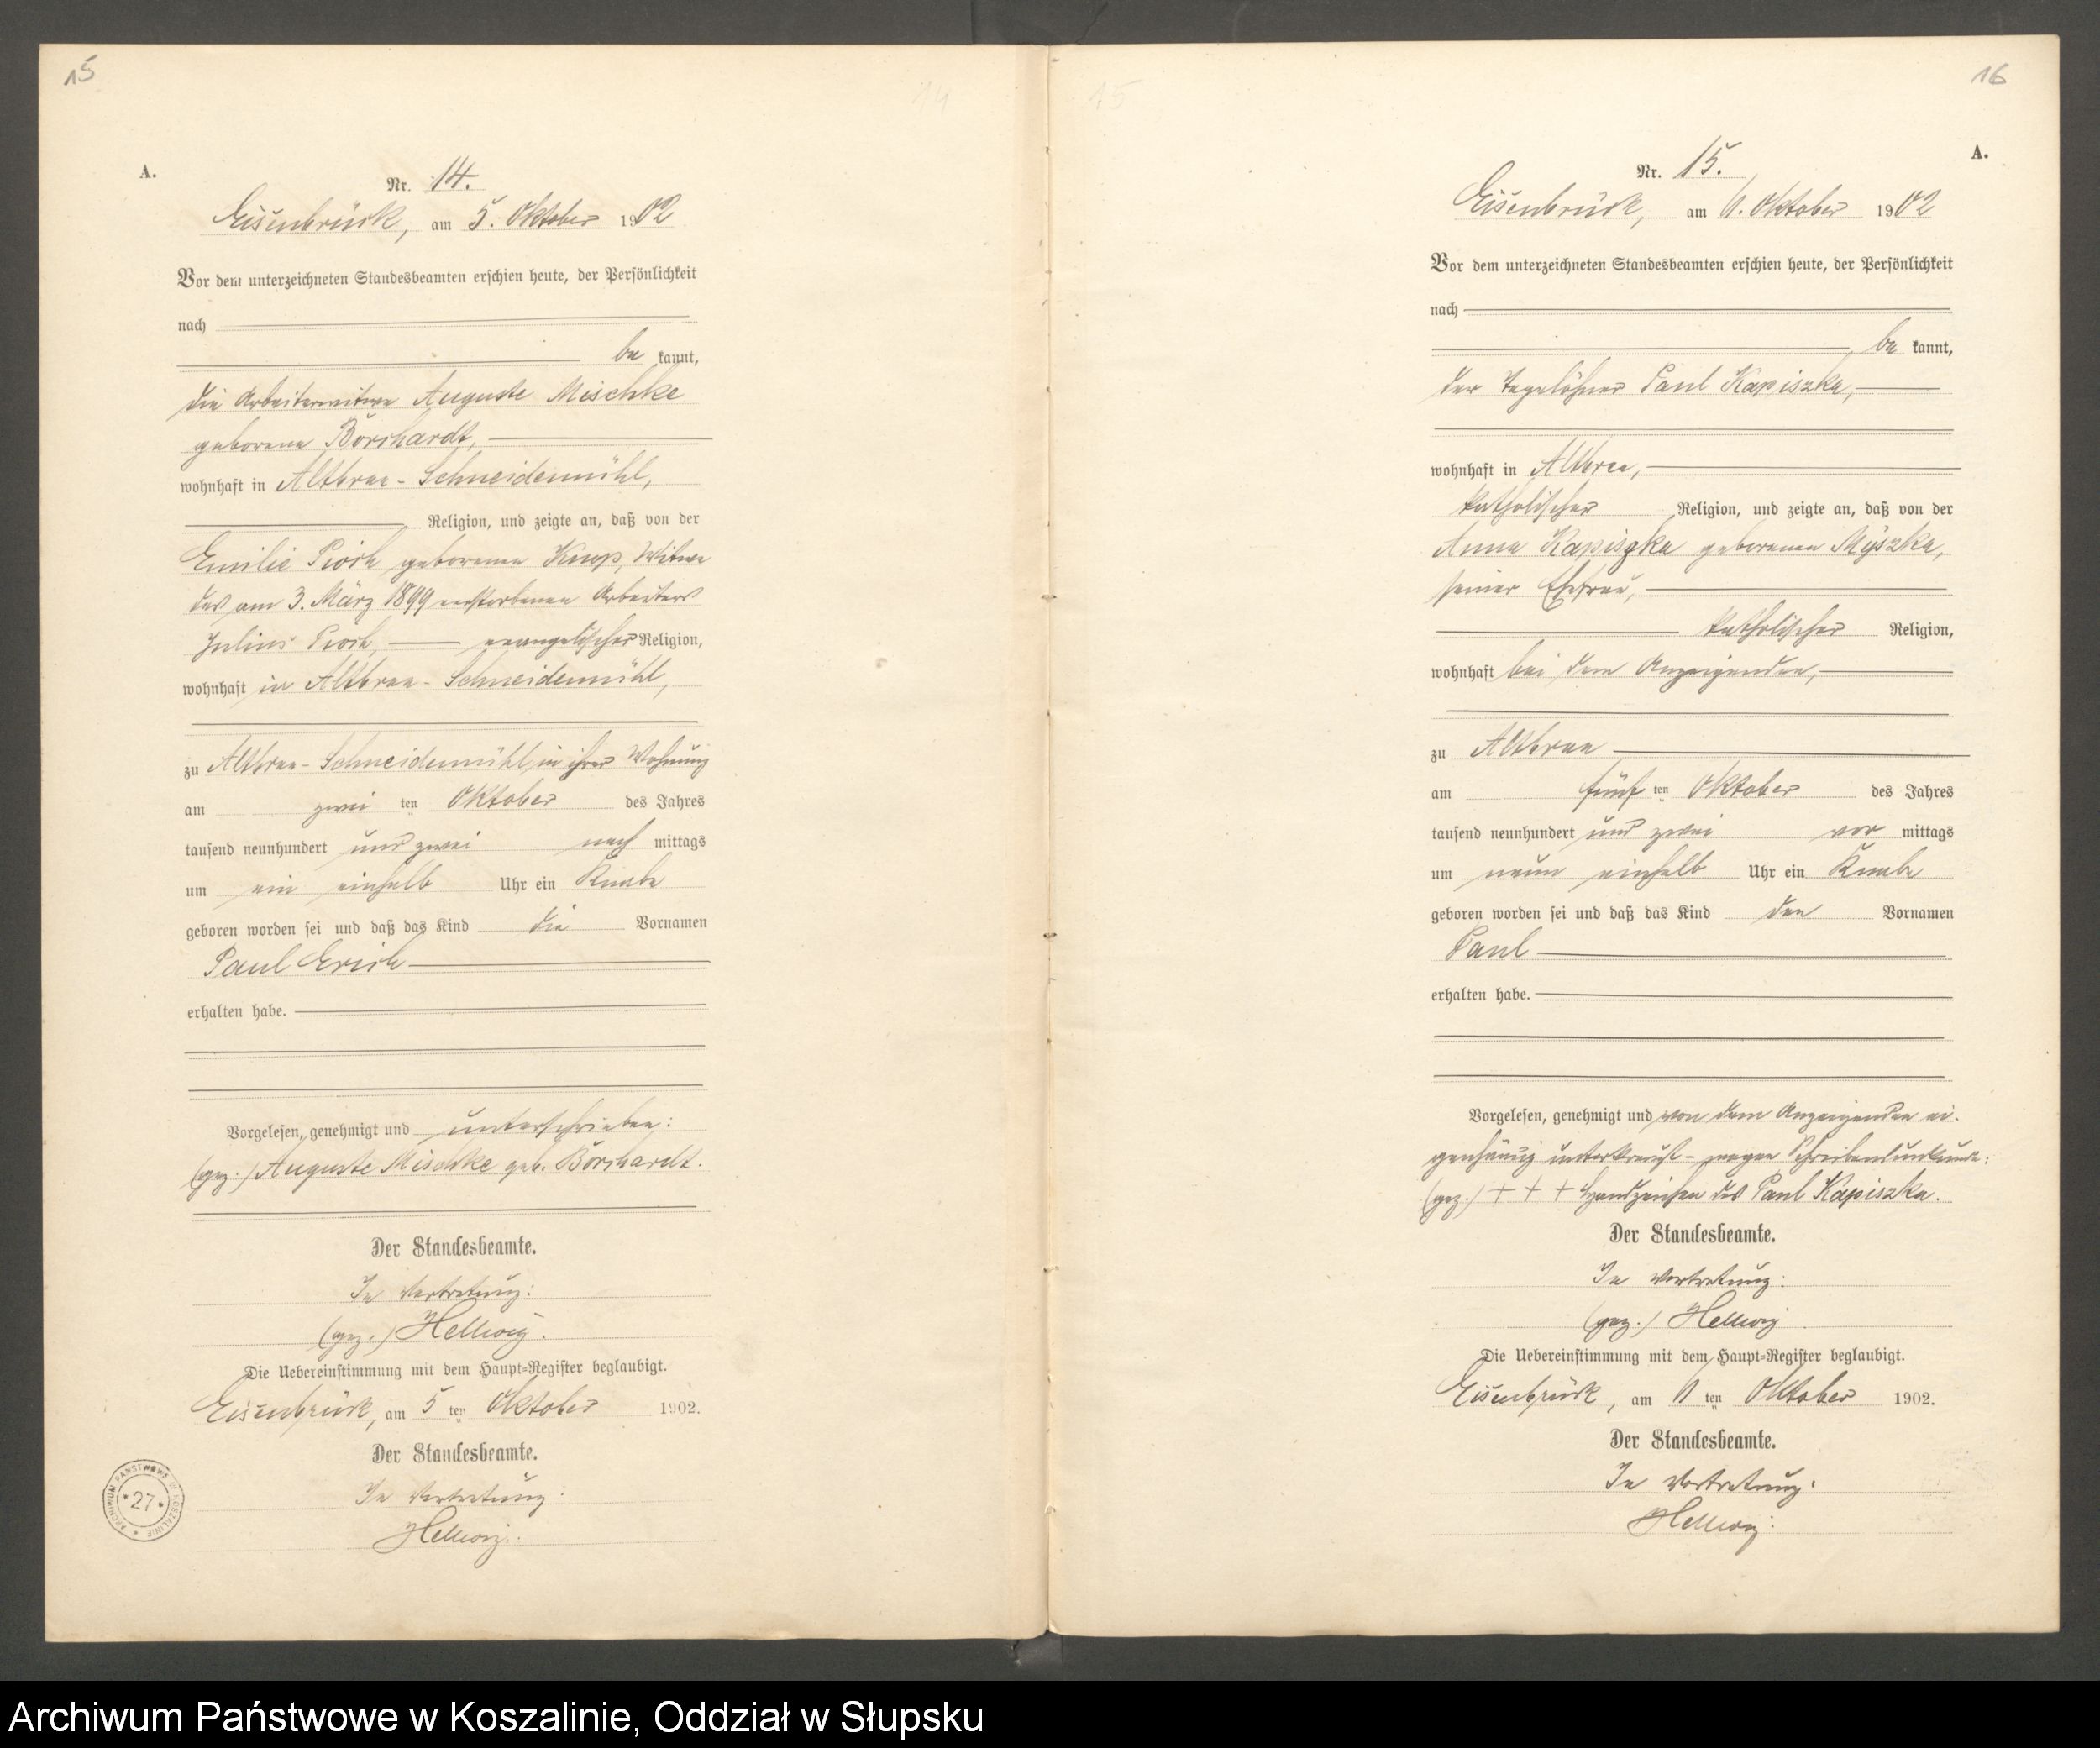 15
14
A.
Nr. 14.
Eisenbrück, am 5. Oktober 1902
Vor dem unterzeichneten Standesbeamten erschien heute, der Persönlichkeit
nach
be kannt,
die Arbeiterwitwe Auguste Mischke
geborene Borchardt,
wohnhaft in Altbraa-Schneidemühl,
Religion, und zeigte an, daß von der
Emilie geborenen Knop, Witwe
des am 3. März 1899 verstorbenen Arbeiters
Julius evangelischer Religion,
wohnhaft in Altbraa-Schneidemühl,
zu Altbraa-Schneidemühl, in ihrer Wohnung
am zwei ten Oktober des Jahres
tausend neunhundert und zwei nach mittags
um ein einhalb Uhr ein Knabe
geboren worden sei und daß das Kind die Vornamen
Paul Erich
erhalten habe.
Vorgelesen, genehmigt und unterschrieben:
(gez.) Auguste Mischke geb. Borchardt.
Der Standesbeamte.
In Vertretung:
(gez.) Hellwig.
Die Uebereinstimmung mit dem Haupt-Register beglaubigt.
Eisenbrück, am 5 ten Oktober 1902.
Der Standesbeamte.
In Vertretung:
Hellwig.
ARCHIWUM PAŃSTWOWE W KOSZALINIE
* 27 *
15
16
A.
Nr. 15.
Eisenbrück, am 6. Oktober 1902
Vor dem unterzeichneten Standesbeamten erschien heute, der Persönlichkeit
nach
be kannt,
der Tagelöhner Paul Kapiszka,
wohnhaft in Altbraa,
katholischer Religion, und zeigte an, daß von der
Anna Kapiszka geborenen Myszka,
seiner Ehefrau,
katholischer Religion,
wohnhaft bei dem Anzeigenden,
zu Altbraa
am fünf ten Oktober des Jahres
tausend neunhundert und zwei vor mittags
um neun einhalb Uhr ein Knabe
geboren worden sei und daß das Kind den Vornamen
Paul
erhalten habe.
Vorgelesen, genehmigt und von dem Anzeigenden ei-
genhändig unterkreuzt - wegen Schreibensunkunde:
(gez.) + + + Handzeichen des Paul Kapiszka.
Der Standesbeamte.
In Vertretung:
(gez.) Hellwig
Die Uebereinstimmung mit dem Haupt-Register beglaubigt.
Eisenbrück, am 6 ten Oktober 1902.
Der Standesbeamte.
In Vertretung:
Hellwig.
Archiwum Państwowe w Koszalinie, Oddział w Słupsku